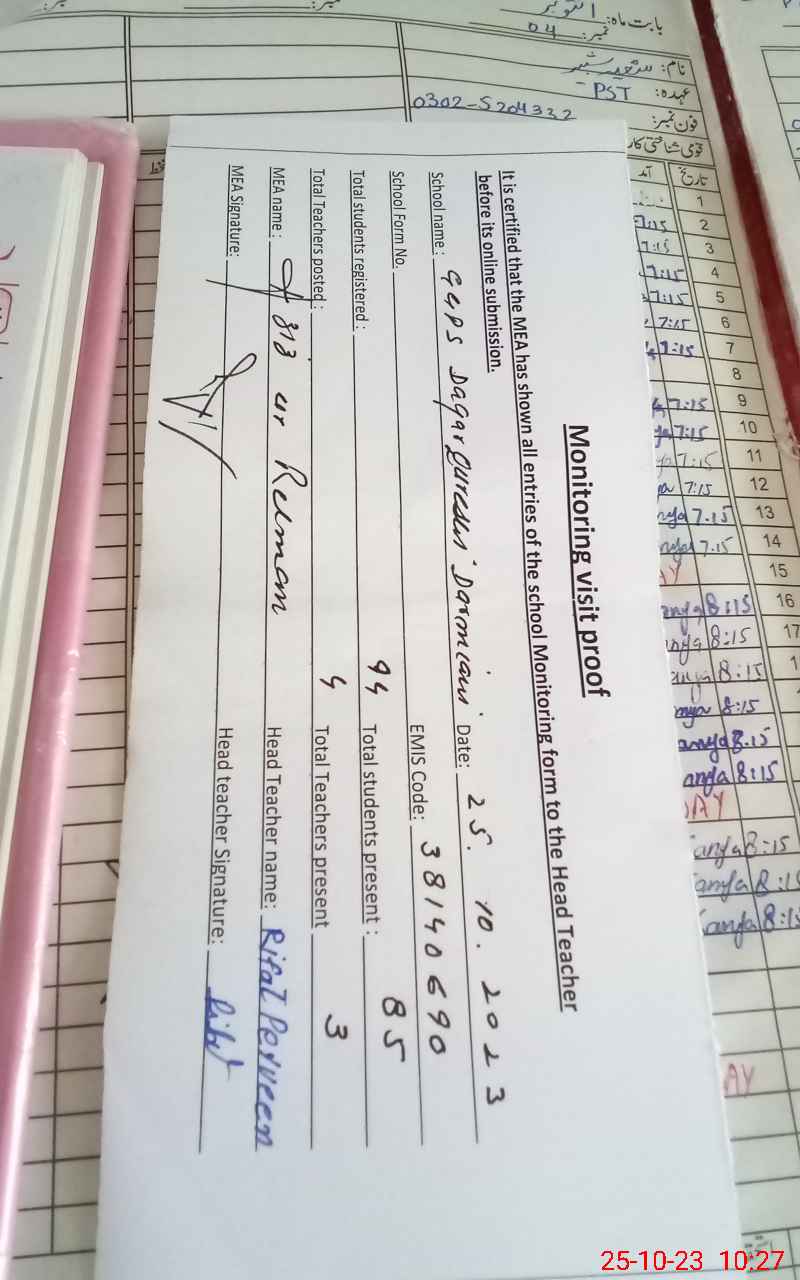 بابت ماہ: اکتوبر
نمبر: 04
نام:
عہدہ: PST
فون نمبر: 0302-5204332
قومی شناختی کارڈ
تاریخ آمد
1
2 7:15
3 7:15
4 7:15
5 7:15
6 7:15
7 7:15
8
9 7:15
10 7:15
11 7:15
12 7:15
13 7.15
14 7.15
15
16 8:15
17 8:15
8:15
8:15
8.15
8:15
8:15
8:15
8:15
Monitoring visit proof
It is certified that the MEA has shown all entries of the school Monitoring form to the Head Teacher
before its online submission.
School name: GGPS Dagar Date: 25. 10. 2023
School Form No. EMIS Code: 38140690
Total students registered: 94 Total students present: 85
Total Teachers posted: 4 Total Teachers present 3
MEA name: ur Rehman Head Teacher name: Rifat Perveen
MEA Signature: Head teacher Signature:
25-10-23 10:27